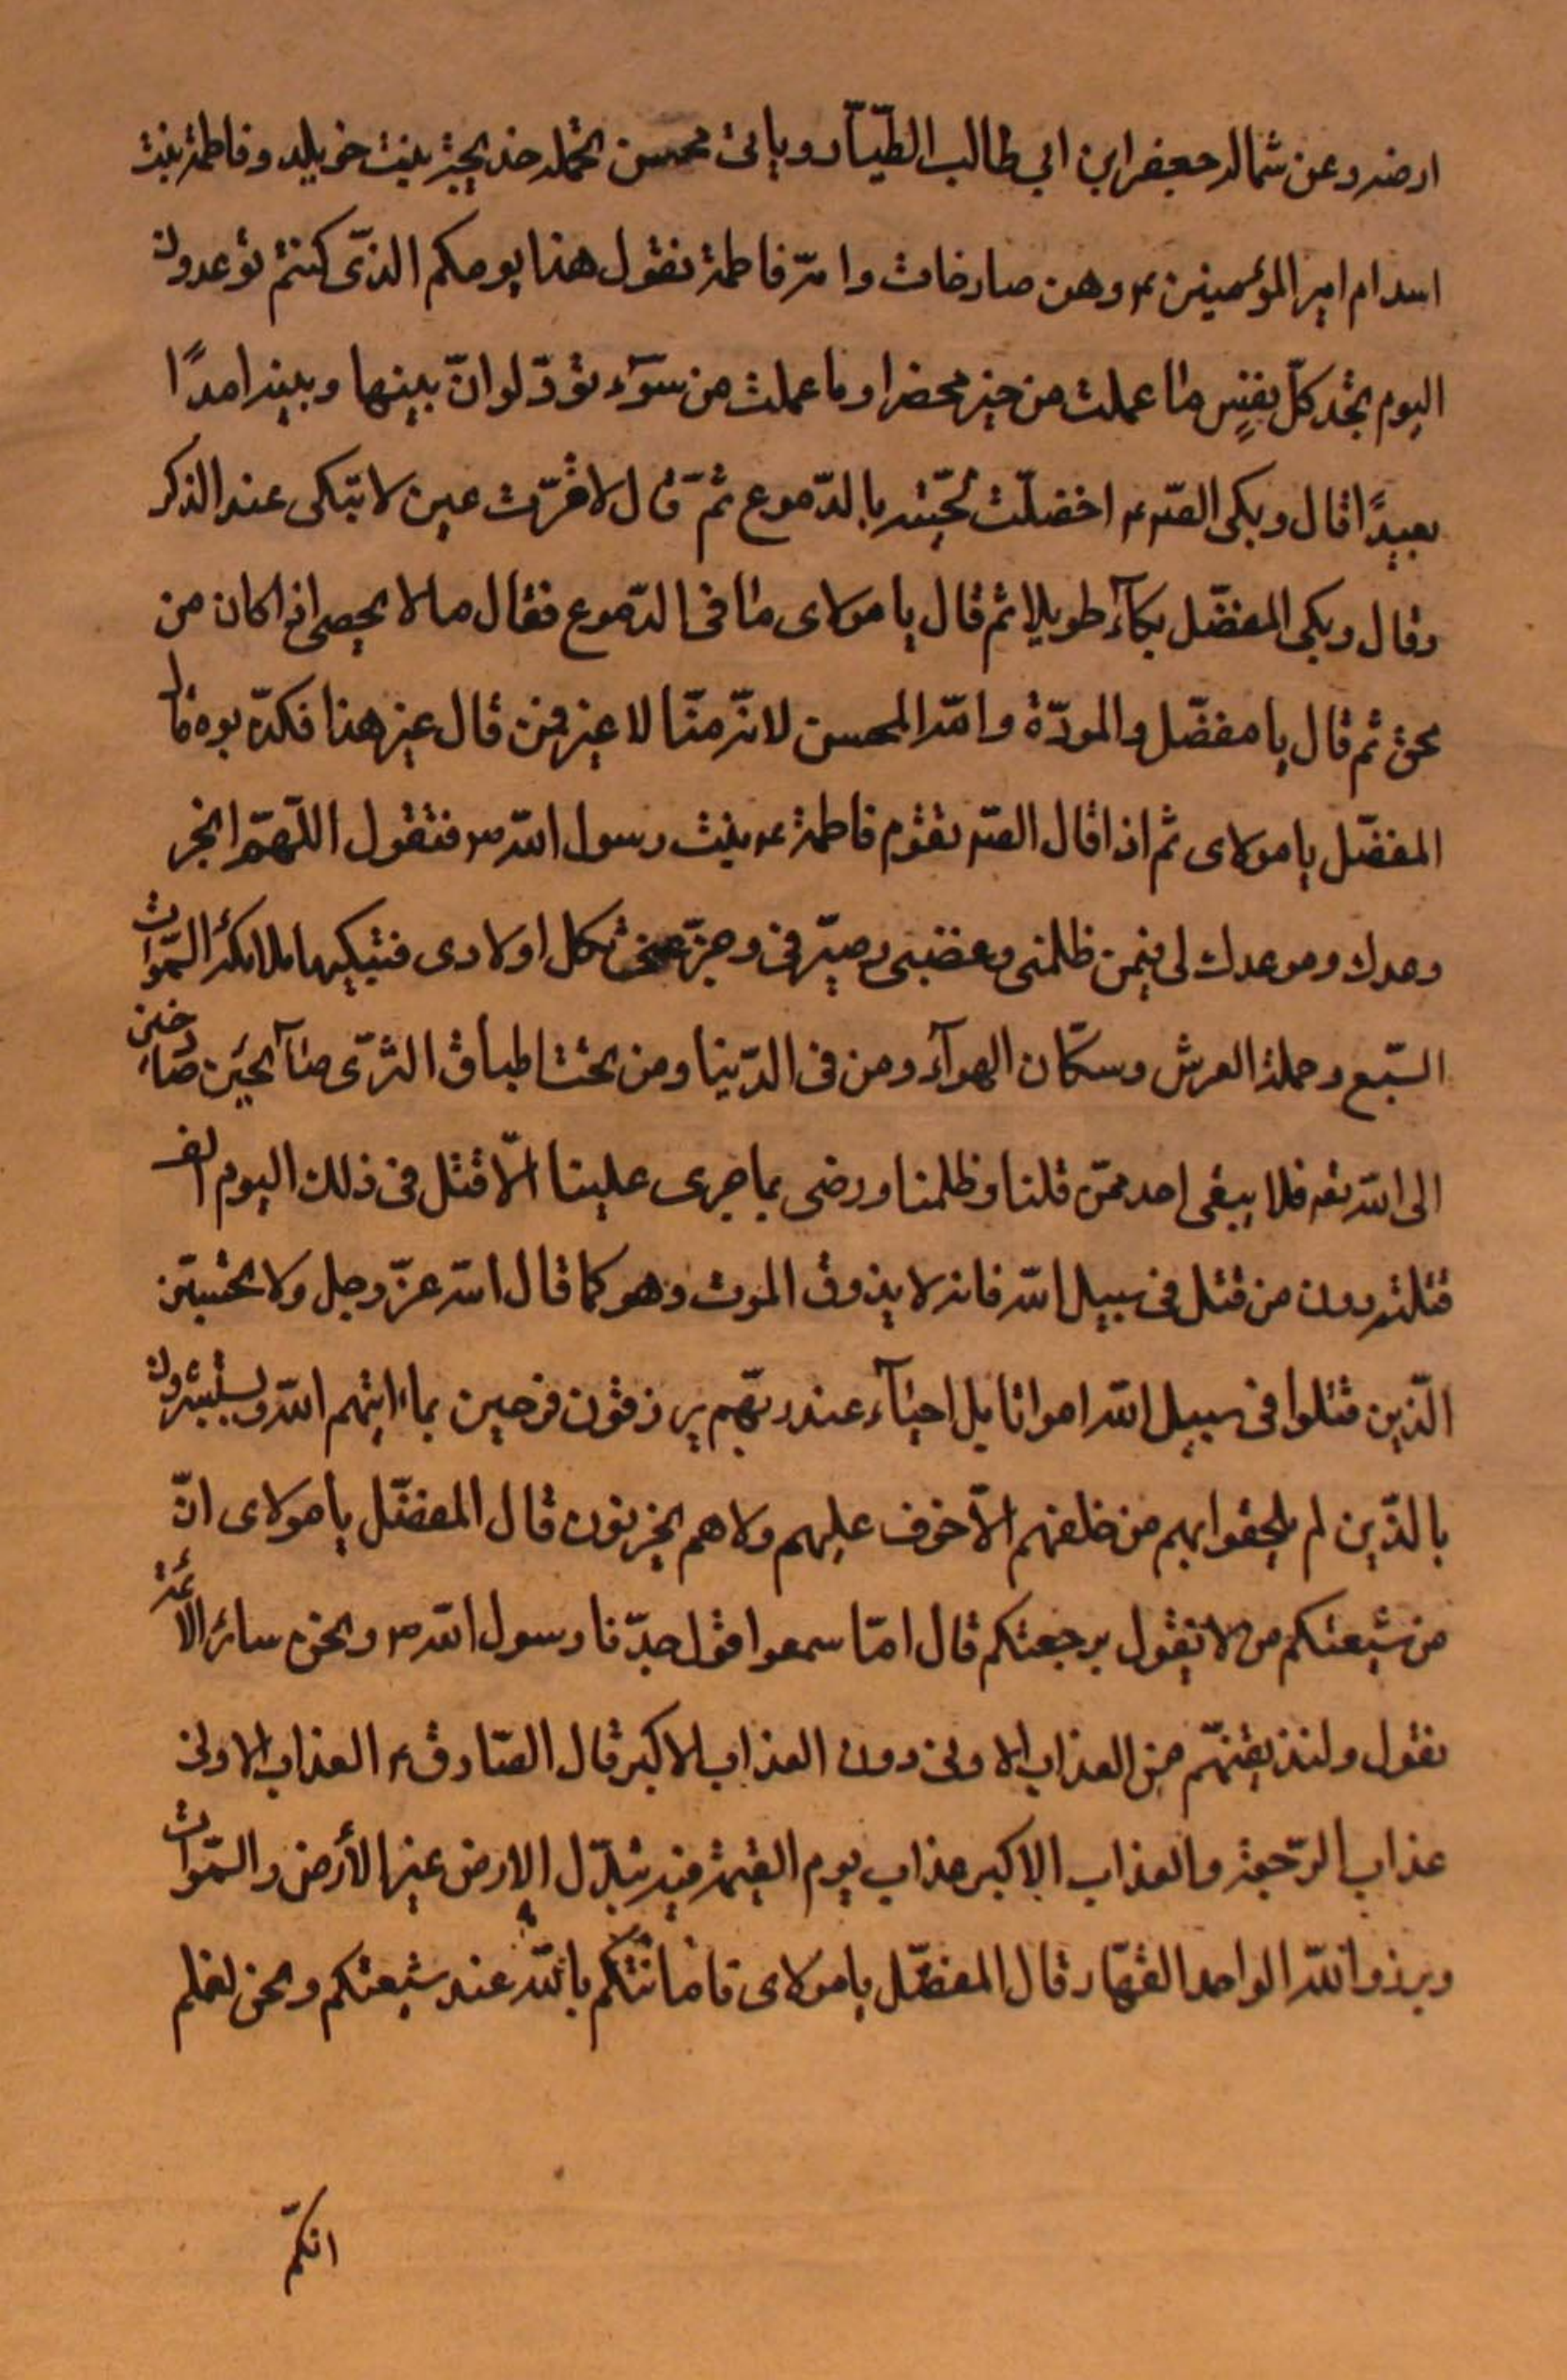 ارضه وعن شماله جعفر ابن ابي طالب الطيّار ويأتى محسن تحمله خديجة بنت خويلد وفاطمة بنت
اسد ام امير المؤمنين ء وهن صارخات وامّه فاطمة تقول هذا يومكم الذّى كنتم توعدون
اليوم تجد كلّ نفسٍ ما عملت من خير محضرا وما عملت من سوٓء تودّ لو انّ بينها وبينه امدًا
بعيدًا قال وبكى الصّ ء اخضلّت لحيته بالدّموع ثمّ قال لا قرّت عين لا تبكى عند الذكر
وقال وبكى المفضّل بكآء طويلا ثم قال يا مولاى ما فى الدّموع فقال ما لا يحصى اذا كان من
محق ثم قال يا مفضّل والمودّة وامّه المحسن لانّه منّا لا غير فمن قال غير هذا فكذّبوه قال
المفضّل يا مولاى ثم اذا قال الصّ تقوم فاطمة ء بنت رسول اللّه ص فتقول اللّهمّ انجز
وعدك وموعدك لى فيمن ظلمنى وغضبنى وضربنى وجزّعنى ثكل اولادى فتبكيها ملائكة السّموات
السّبع وحملة العرش وسكّان الهوآء ومن فى الدّنيا ومن تحت اطباق الثرّى صآئحين صارخين
الى اللّه تعه فلا يبقى احد ممّن قتلنا وظلمنا ورضى بما جرى علينا الّا قتل فى ذلك اليوم الف
قتلة دون من قتل فى سبيل اللّه فانه لا يذوق الموت وهو كما قال اللّه عزّ وجل ولا تحسبنّ
الّذين قتلوا فى سبيل اللّه امواتا بل احيآء عند ربّهم يرزقون فرحين بما اتيهم اللّه ويستبشرون
بالّذين لم يلحقوا بهم من خلفهم الّا خوف عليهم ولا هم يحزنون قال المفضّل يا مولاى انّ
من شيعتكم من لا يقول برجعتكم قال امّا سمعوا قول جدّنا رسول اللّه ص ونحن سائر الائمة
نقول ولنذيقنّهم من العذاب الادنى دون العذاب الاكبر قال الصّادق ء العذاب الادنى
عذاب الرّجعة والعذاب الاكبر عذاب يوم القيمة فيه تبدّل الارض غير الأرض والسّموات
وبرزوا للّه الواحد القهّار قال المفضّل يا مولاى فامامتكم باللّه عند شيعتكم ونحن نعلم
انكّم